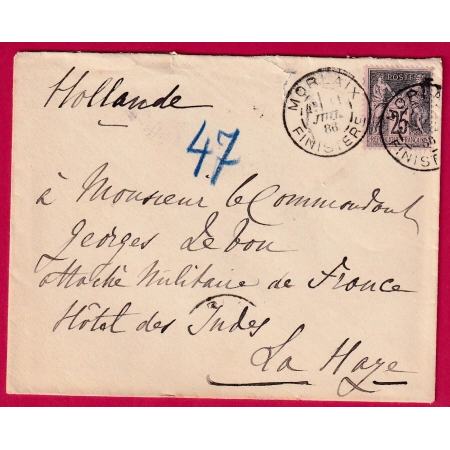 Hollande
MORLAIX
JUIL.
86
FINISTERE
POSTE
25
FINIST
47
à Monsieur le Commandant
Georges Le Bon
attaché Militaire de France
Hôtel des Indes
La Haye